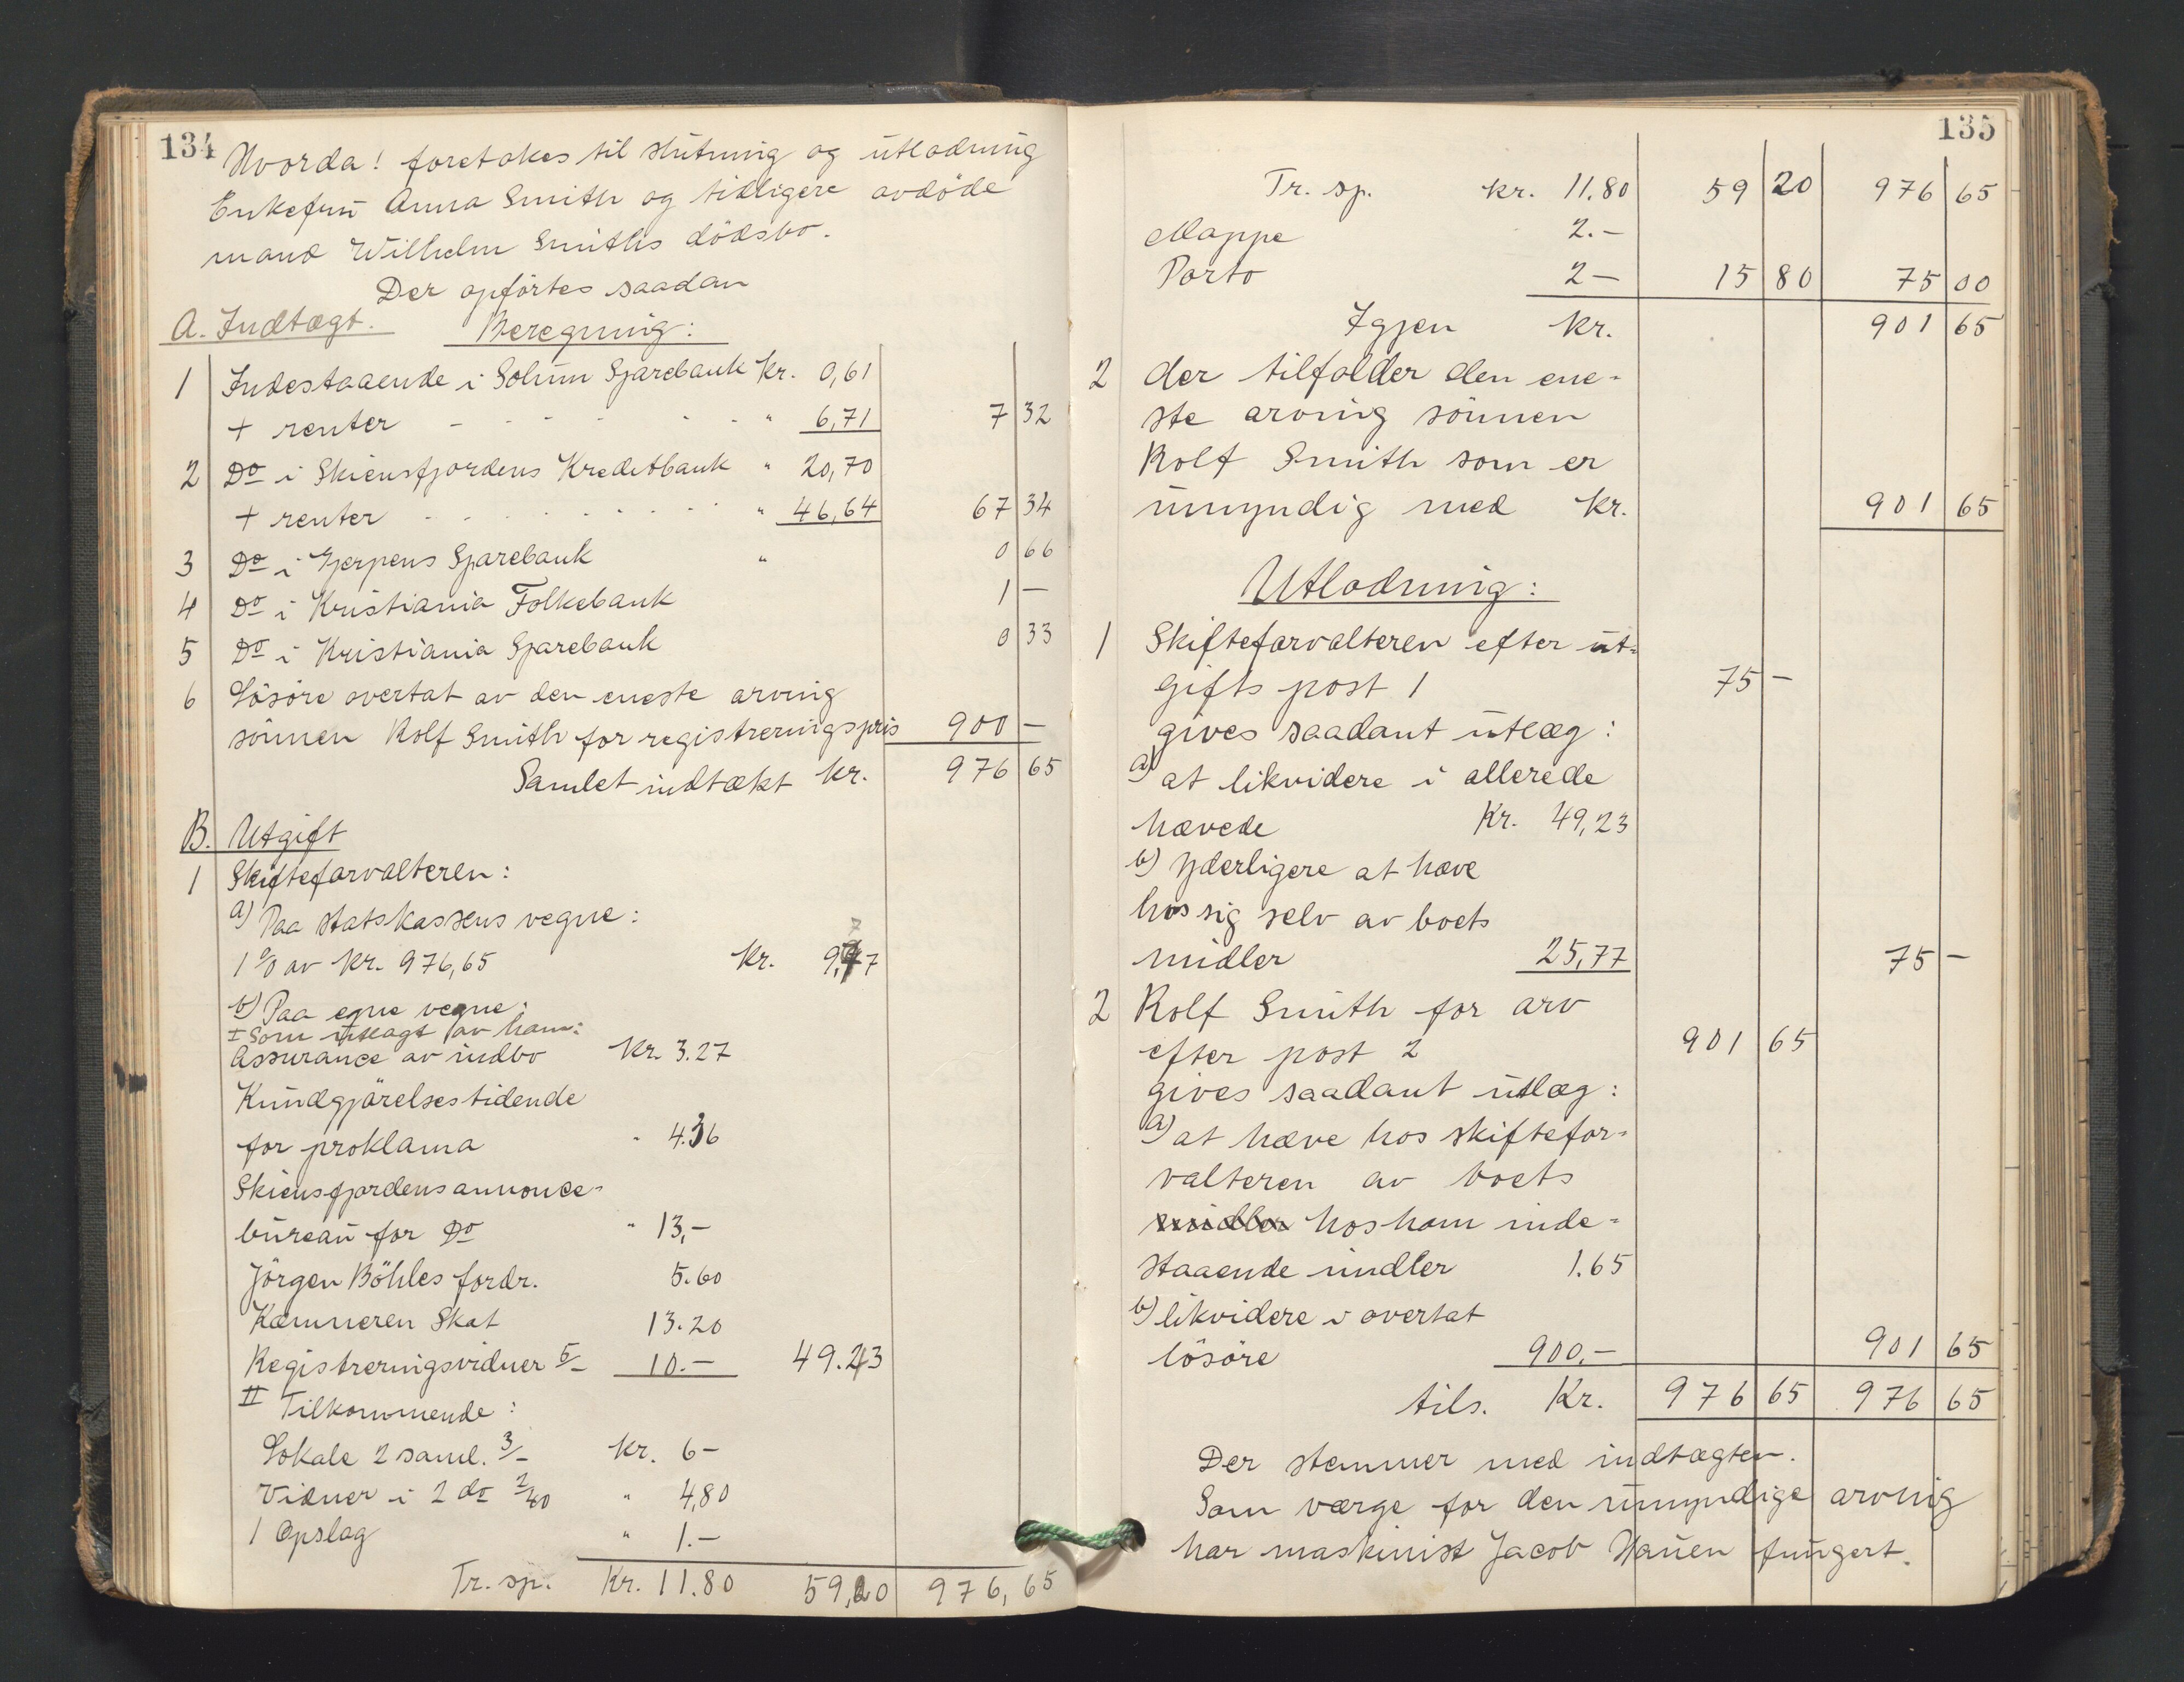 134
Hvorda! foretokes til slutning og utlodning
Enkefru Anna Smith og tidligere avdöde
mand Wilhelm Smiths dödsbo.
Der opförtes saadan
A. Indtægt. Beregning:
1 Indestaaende i Solum Sparebank Kr. 0,61
+ renter - - - - - " 6,71 7 32
2 Do i Skiensfjordens Kreditbank " 20,70
+ renter - - - - - - - - " 46,64 67 34
3 Do i Gjerpens Sparebank " 0 66
4 Do i Kristiania Folkebank 1 -
5 Do i Kristiania Sparebank 0 33
6 Lösöre overtat av den eneste arving
sönnen Rolf Smith for registreringspris 900 -
Samlet indtækt Kr. 976 65
B. Utgift
1 Skifteforvalteren:
a) Paa statskassens vegne:
1 % av Kr. 976,65 Kr. 9,77
b) Paa egne vegne:
I Som utlagt av ham:
Assurance av indbo Kr. 3.27
Kundgjörelsestidende
for proklama " 4.36
Skiensfjordens annonce-
bureau for Do " 13,-
Jörgen Böhles fordr. 5.60
Kæmneren Skat 13.20
Registreringsvidner 5/- 10.- 49.23
II Tilkommende:
Lokale 2 saml. 3/- Kr. 6-
Vidner i 2 do 2/40 " 4,80
1 Opslag " 1.-
Tr. sp. Kr. 11.80 59,20 976,65
135
Tr. sp. Kr. 11.80 59 20 976 65
Mappe 2.-
Porto 2- 15 80 75 00
Igjen Kr. 901 65
2 der tilfalder den ene-
ste arving sönnen
Rolf Smith som er
umyndig med Kr. 901 65
Utlodning:
1 Skifteforvalteren efter ut-
gifts post 1 75 -
gives saadant utlæg:
a) at likvidere i allerede
hævede Kr. 49,23
b) Yderligere at hæve
hos sig selv av boets
midler 25,77 75 -
2 Rolf Smith for arv
efter post 2 901 65
gives saadant utlæg:
a) at hæve hos skiftefor-
valteren av boets
midler hos ham inde-
staaende midler 1.65
b) likvidere i overtat
lösöre 900.- 901 65
tils. Kr. 976 65 976 65
Der stemmer med indtægten.
Som værge for den umyndige arving
har maskinist Jacob Hauen fungert.